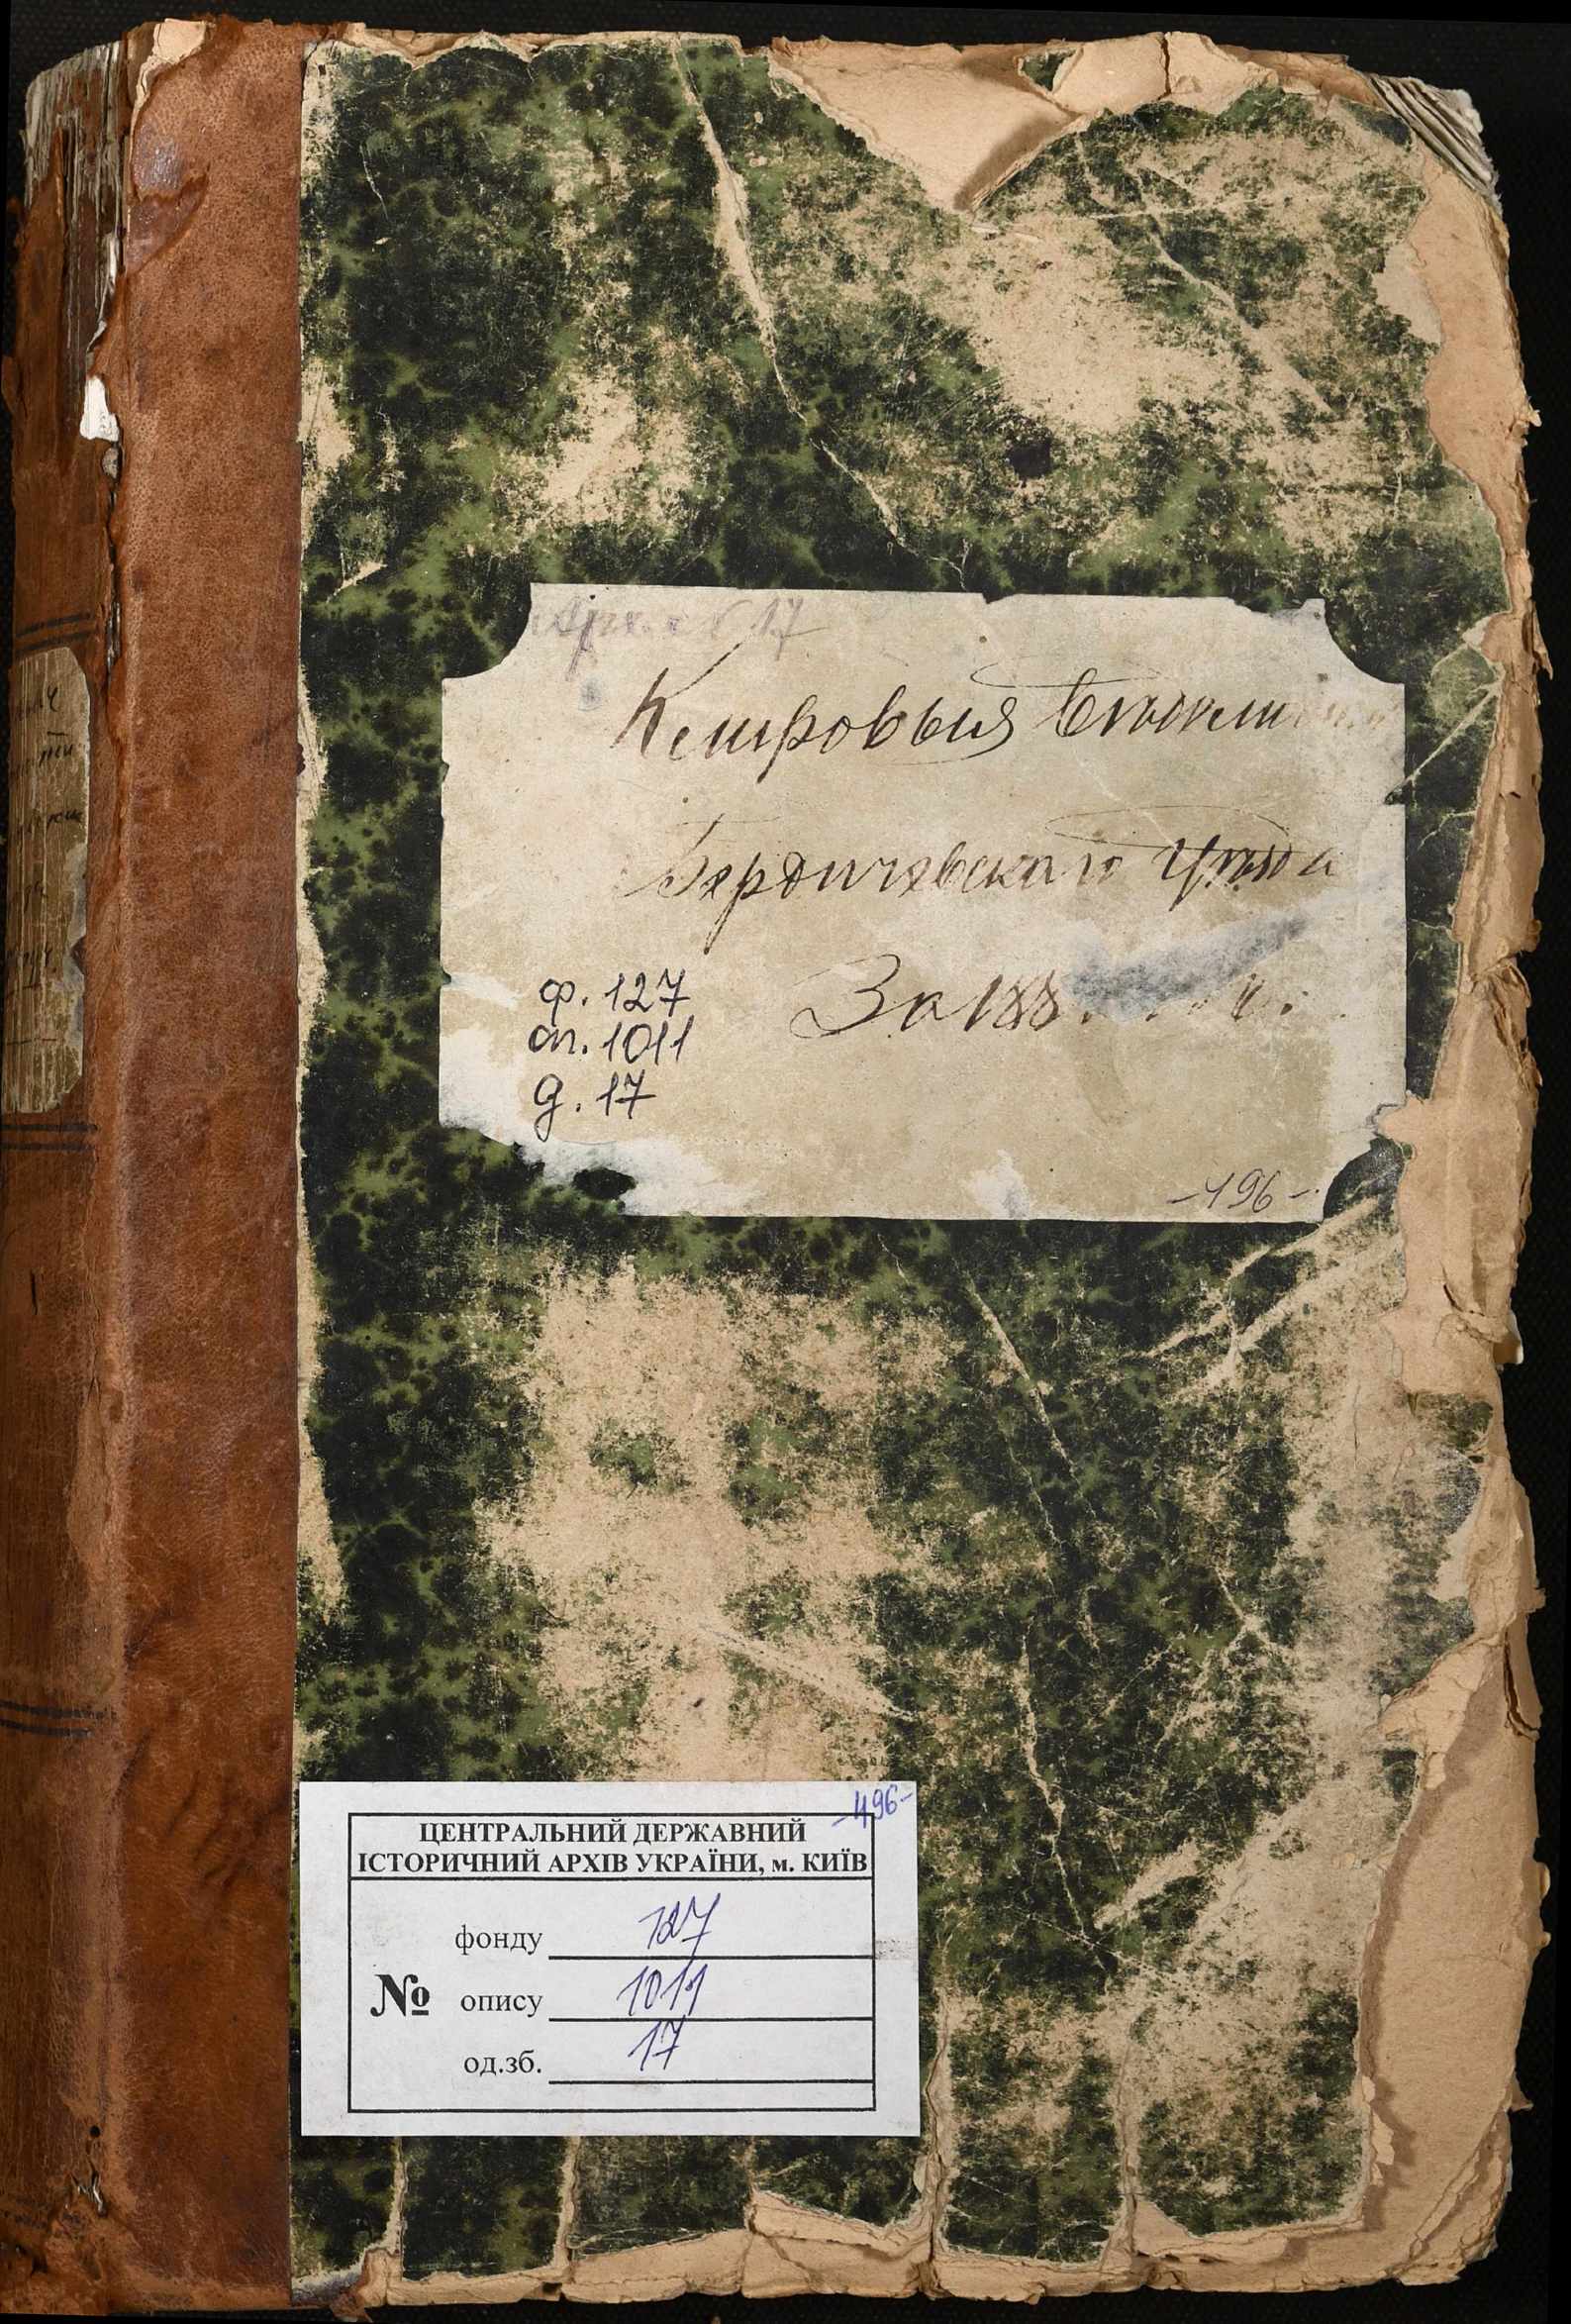 17
Клировыя
Бердичевскаго уѣзда
За 188
ф. 127
оп. 1011
д. 17
-196-
-196-
ЦЕНТРАЛЬНИЙ ДЕРЖАВНИЙ
ІСТОРИЧНИЙ АРХІВ УКРАЇНИ, м. КИЇВ
фонду 127
№ опису 1011
од.зб. 17